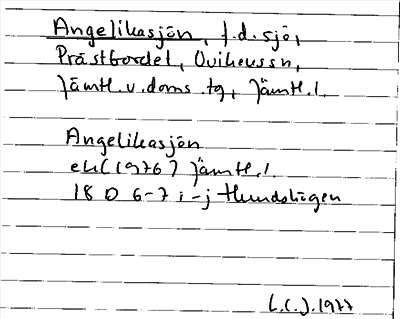 Angelikasjön, f.d. sjö,
Prästbordet, Ovikens sn,
Jämtl. v. doms. tg, Jämtl. l.
Angelikasjön
ek (1976) Jämtl. l.
18 D 6-7 i-j Hundshögen
L.(.).1977